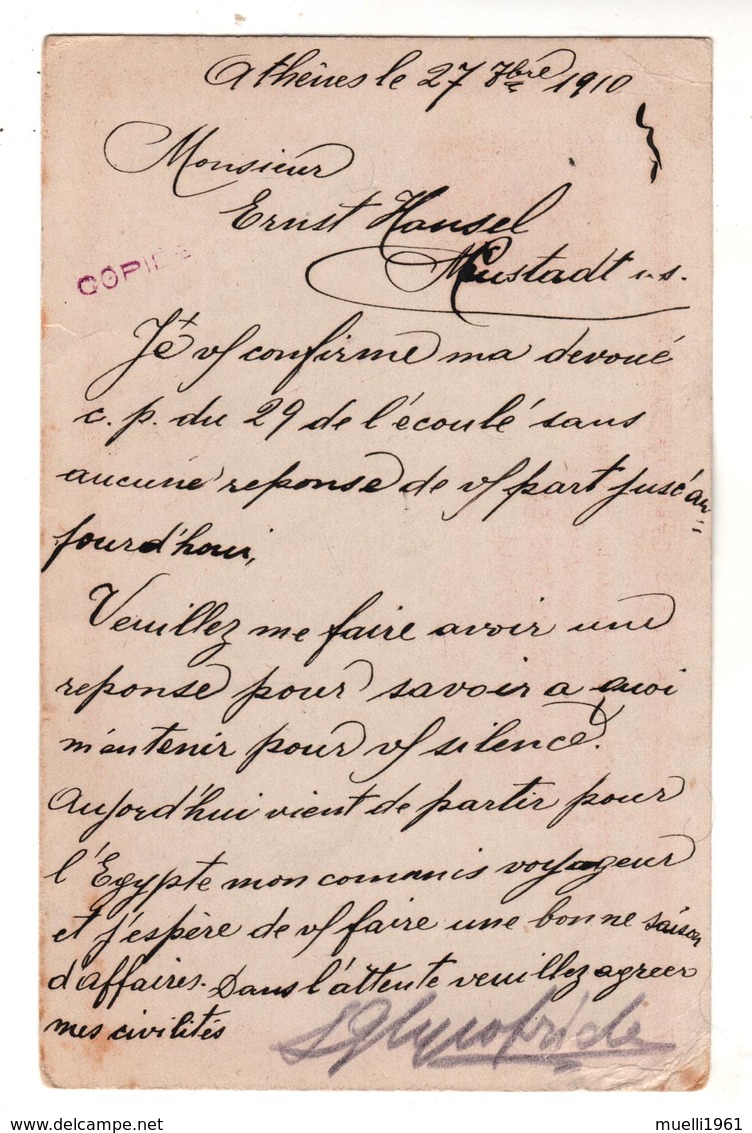 Athènes le 27 7bre 1910
Monsieur
Ernst Hansel
Neustadt s.
COPIE
Je vs confirme ma devoué
c. p. du 29 de l'écoulé sans
aucune reponse de vs part jusc'au=
jourd'hui,
Veuillez me faire avoir une
reponse pour savoir a quoi
m'en tenir pour vs silence.
Aujord'hui vient de partir pour
l'Egypte mon commis voyageur
et j'espère de vs faire une bonne saison
d'affaires. Dans l'attente veuillez agreer
mes civilités
muelli1961